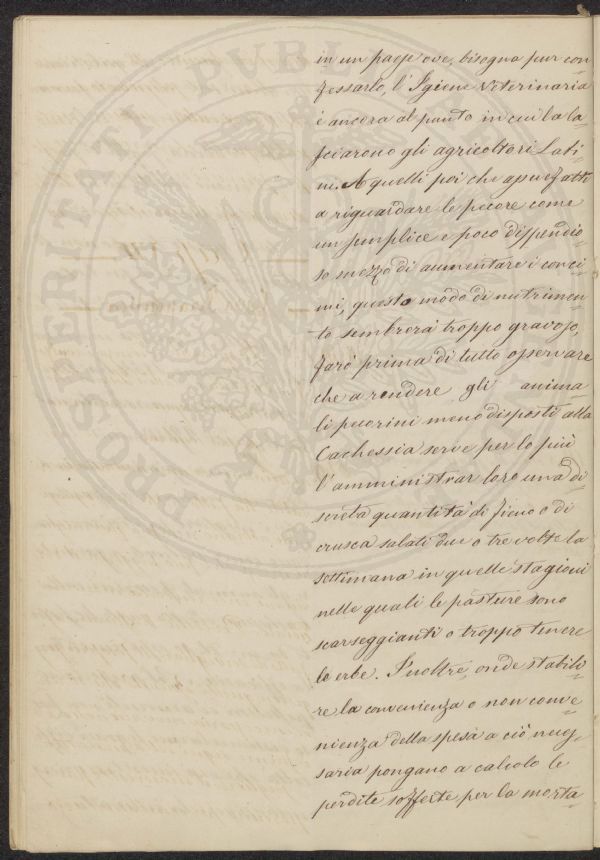 in un paese ove, bisogna pur con=
fessarlo, l'Igiene Veterinaria
è ancora al punto in cui la la=
sciarono gli agricoltori Lati=
ni. A quelli poi che assuefatti
a riguardare le pecore come
un semplice e poco dispendio=
so mezzo di aumentare i conci=
mi, questo modo di nutrimen=
to sembrerà troppo gravoso,
farò prima di tutto osservare
che a rendere gli anima=
li pecorini meno disposti alla
Cachessia serve per lo più
l'amministrar loro una di=
screta quantità di fieno o di
crusca salati due o tre volte la
settimana in quelle stagioni
nelle quali le pasture sono
scarseggianti o troppo tenere
le erbe. Inoltre, onde stabili=
re la convenienza o non conve=
nienza della spesa a ciò neces=
saria pongano a calcolo le
perdite sofferte per la morta=
PROSPERITATI PUBLICAE